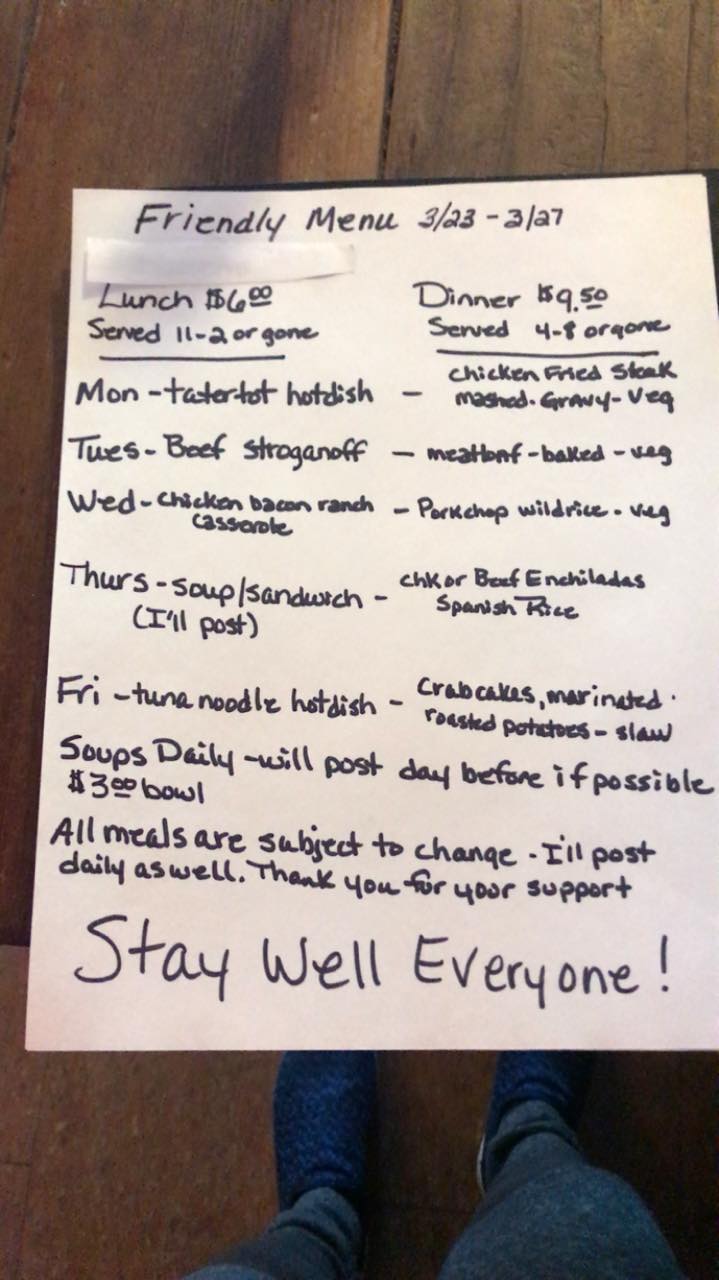 Friendly Menu 3/23 - 3/27
Lunch $6.00
Served 11-2 or gone
Dinner $9.50
Served 4-8 or gone
Mon - tatertot hotdish - chicken Fried Steak
mashed - Gravy - Veg
Tues - Beef Stroganoff - meatloaf - baked - veg
Wed - chicken bacon ranch - Porkchop wildrice - veg
casserole
Thurs - soup/sandwich - chk or Beef Enchiladas
(I'll post) Spanish Rice
Fri - tuna noodle hotdish - Crabcakes, marinated -
roasted potatoes - slaw
Soups Daily - will post day before if possible
$3.00 bowl
All meals are subject to change - I'll post
daily as well. Thank you for your support
Stay Well Everyone!